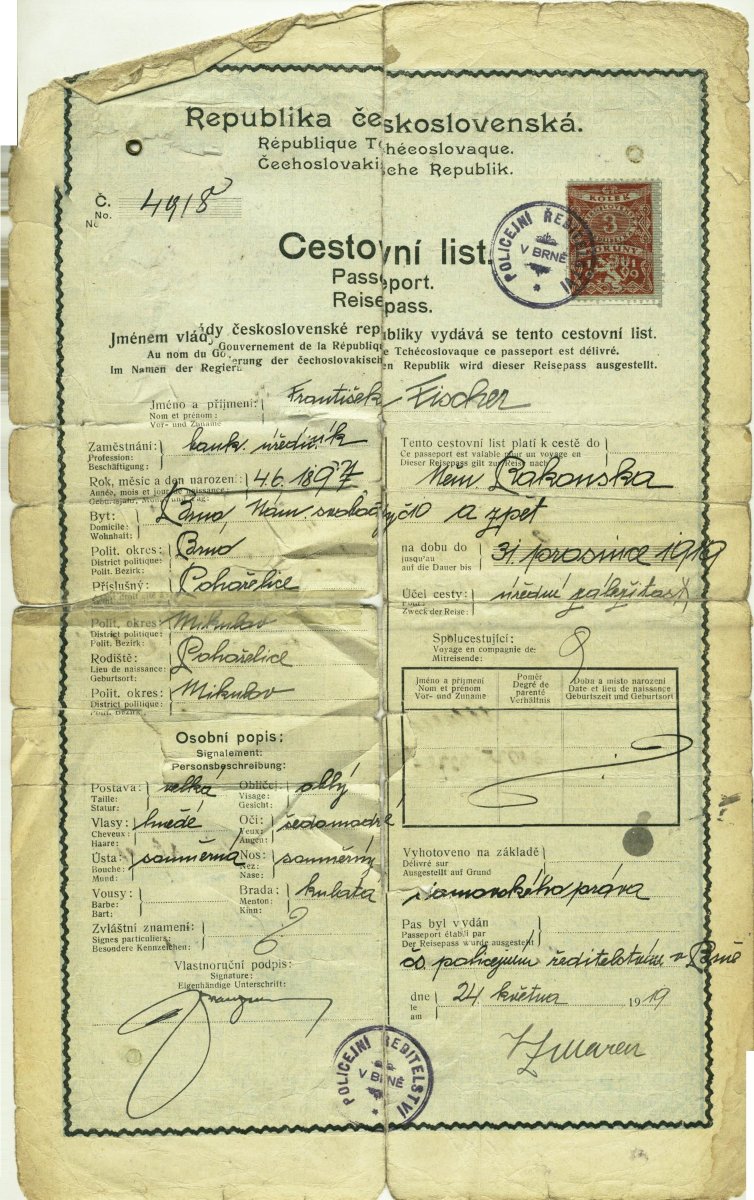 Republika československá.
République Tchécoslovaque.
Čechoslovakische Republik.
Č.
No.
No
4918
KOLEK
3
KORUNY
POLICEJNÍ ŘEDITELSTVÍ
V BRNĚ
Cestovní list.
Passeport.
Reisepass.
Jménem vlády československé republiky vydává se tento cestovní list.
Au nom du Gouvernement de la République Tchécoslovaque ce passeport est délivré.
Im Namen der Regierung der čechoslovakischen Republik wird dieser Reisepass ausgestellt.
Jméno a příjmení:
Nom et prénom:
Vor- und Zuname
František Fischer
Zaměstnání:
Profession:
Beschäftigung:
bank. úředník
Rok, měsíc a den narození:
Année, mois et jour de naissance:
4.6. 1897
Byt:
Domicile:
Wohnhaft:
Brno Nám. svobody 10
Polit. okres:
District politique:
Polit. Bezirk:
Brno
Příslušný:
Pohořelice
Polit. okres:
District politique:
Polit. Bezirk:
Mikulov
Rodiště:
Lieu de naissance:
Geburtsort:
Pohořelice
Polit. okres:
District politique:
Polit. Bezirk:
Mikulov
Osobní popis:
Signalement:
Personsbeschreibung:
Postava:
Taille:
Statur:
velká
Obličej:
Visage:
Gesicht:
oblý
Vlasy:
Cheveux:
Haare:
hnědé
Oči:
Yeux:
Augen:
šedomodré
Ústa:
Bouche:
Mund:
souměrná
Nos:
Nez:
Nase:
souměrný
Vousy:
Barbe:
Bart:
Brada:
Menton:
Kinn:
kulatá
Zvláštní znamení:
Signes particuliers:
Besondere Kennzeichen:
Vlastnoruční podpis:
Signature:
Eigenhändige Unterschrift:
Tento cestovní list platí k cestě do
Ce passeport est valable pour un voyage en
Dieser Reisepass gilt zur Reise nach
Něm Rakouska
a zpět
na dobu do
jusqu'au
auf die Dauer bis
31. prosince 1919
Účel cesty:
Zweck der Reise:
úřední záležitost
Spolucestující:
Voyage en compagnie de:
Mitreisende:
Jméno a příjmení
Nom et prénom
Vor- und Zuname
Poměr
Degré de parenté
Verhältnis
Doba a místo narození
Date et lieu de naissance
Geburtszeit und Geburtsort
Vyhotoveno na základě
Délivré sur
Ausgestellt auf Grund
domovského práva
Pas byl vydán
Passeport établi par
Der Reisepass wurde ausgestellt
čs. policejním ředitelstvím v Brně
dne
le
am
24 května 1919
POLICEJNÍ ŘEDITELSTVÍ
V BRNĚ